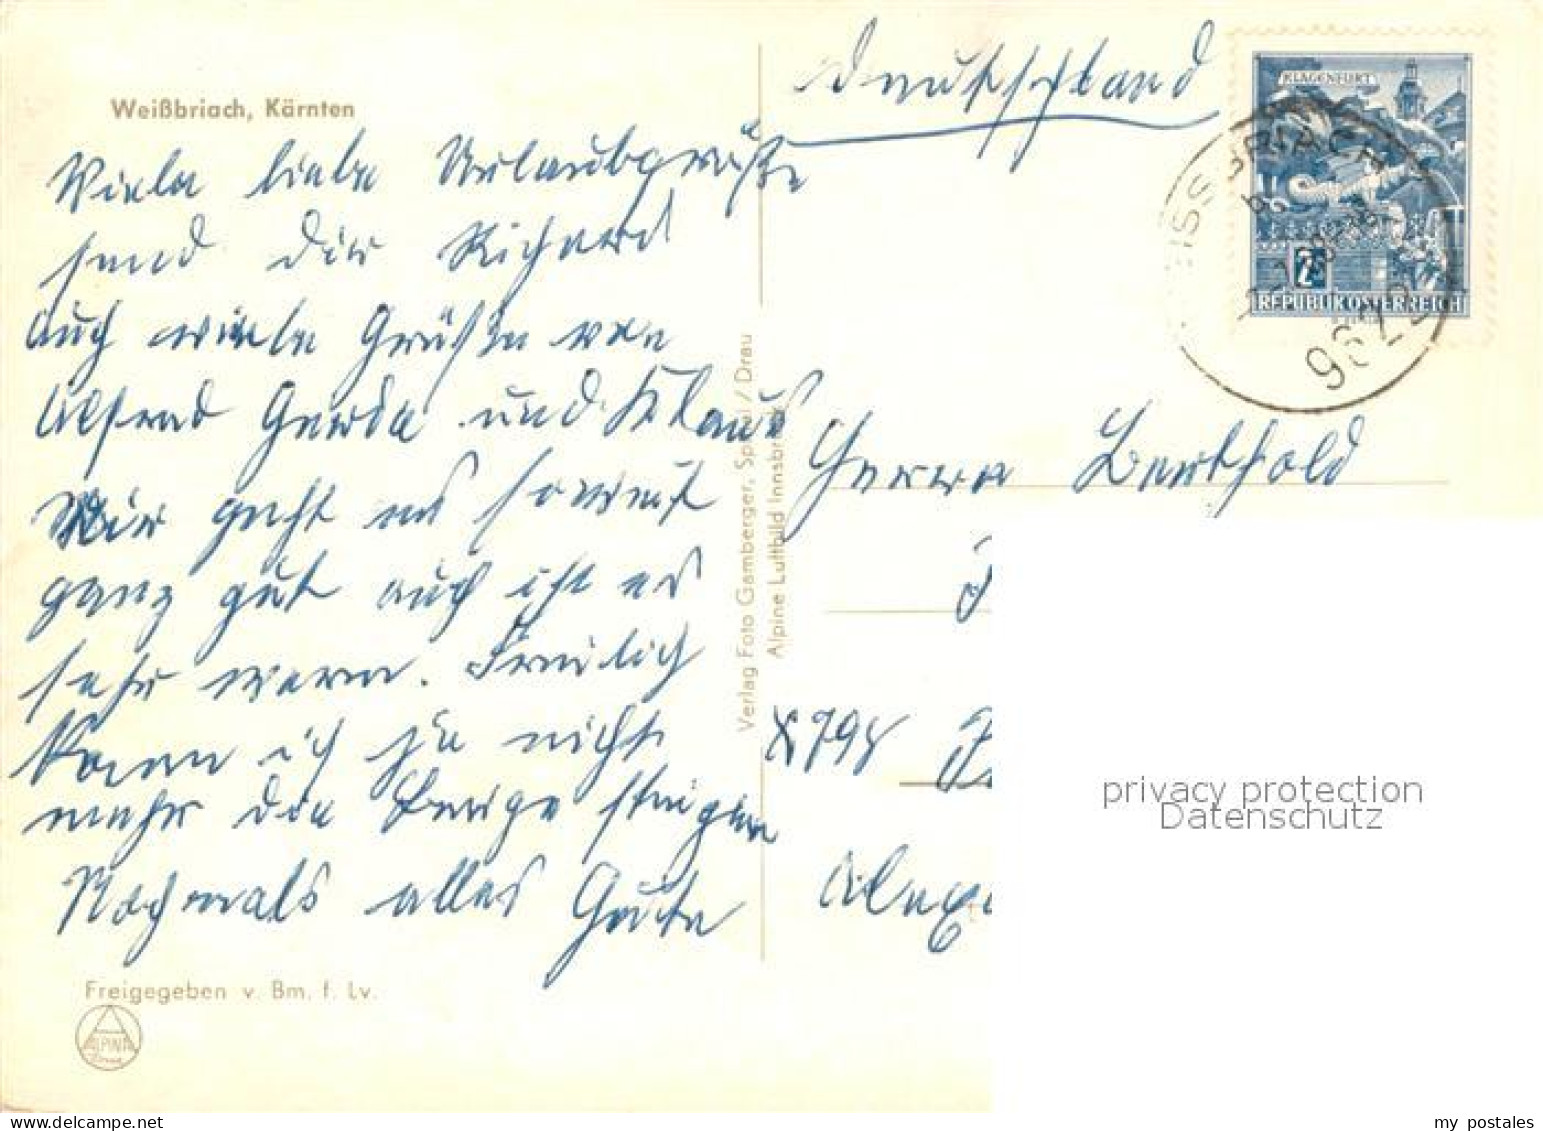 Weißbriach, Kärnten
Viele liebe Urlaubsgrüße
send dir Richard
auch viele Grüße von
Alfred Gerda und Klaus
Mir geht es soweit
ganz gut auch ist es
sehr warm. Freilich
kann ich ja nicht
mehr die Berge steigen
Nochmals alles Gute
Freigegeben v. Bm. f. Lv.
ALPINA
Verlag Foto Gamberger, Spittal / Drau
Alpine Luftbild Innsbruck
Deutschland
KLAGENFURT
2
REPUBLIK ÖSTERREICH
9622
Herrn Berthold
privacy protection
Datenschutz
my postales